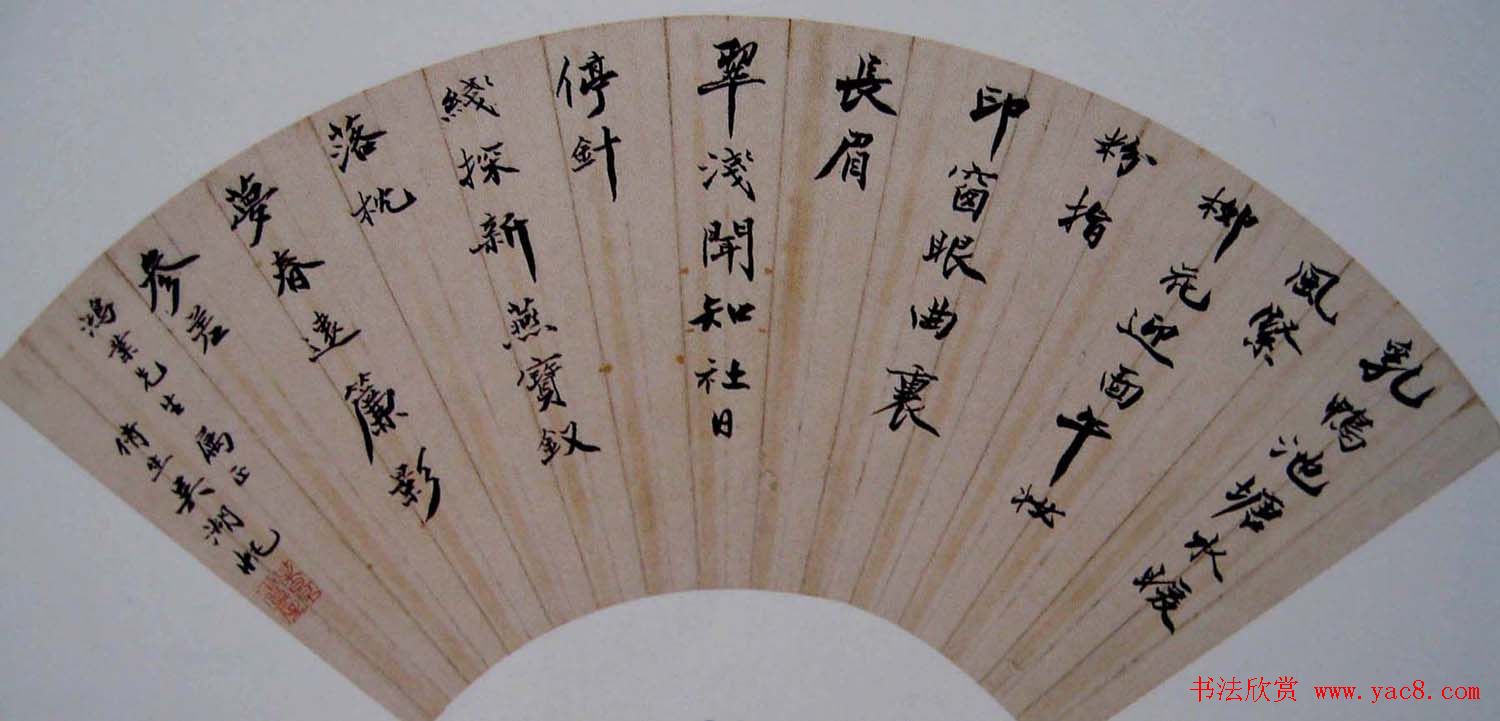 乳鴨池塘水暖
風緊
柳花迎面午妝
粉指
印窗眼曲裏
長眉
翠淺聞知社日
停針
綫探新燕寶釵
落枕
夢春遠簾影
參差
鴻業先生属正
倩 吴湖帆
书法欣赏 www.yac8.com